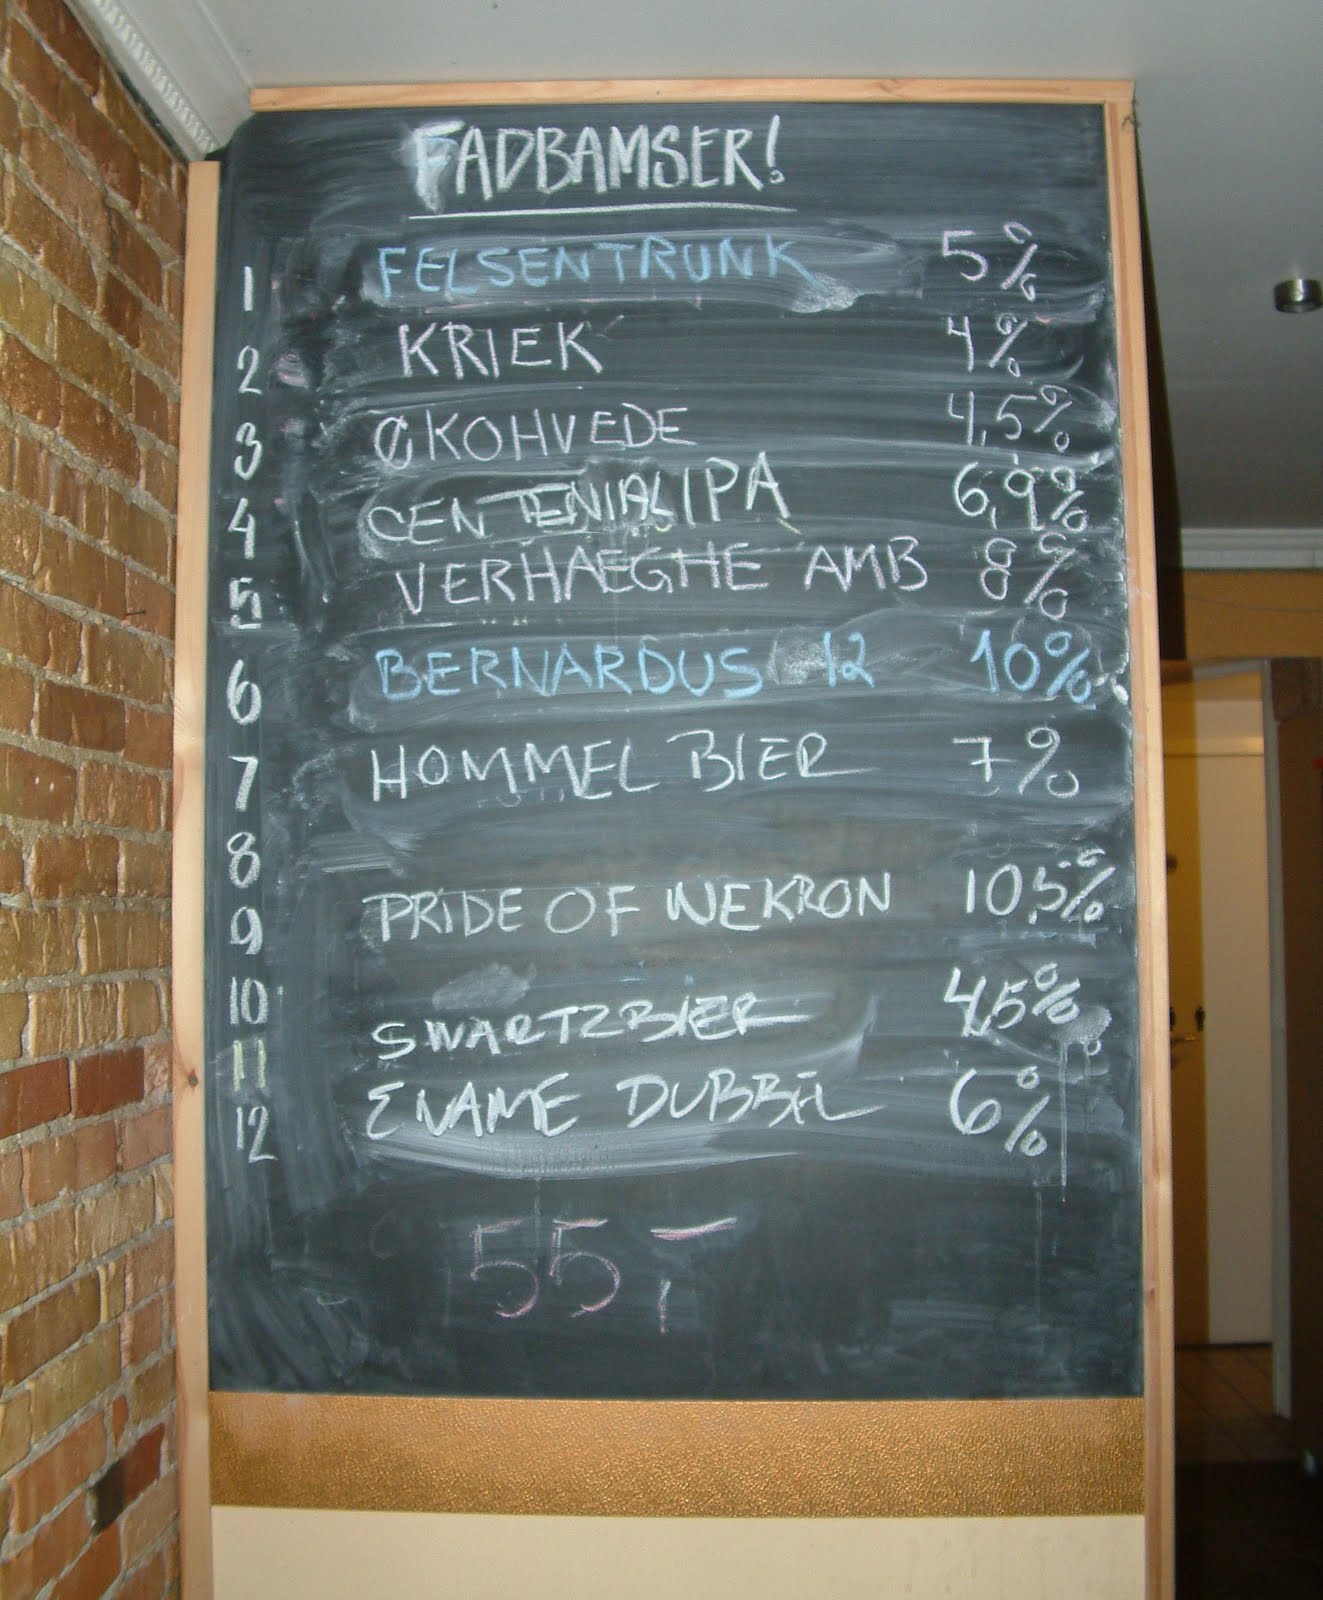 FADBAMSER!
1 FELSENTRUNK 5%
2 KRIEK 4%
3 ØKOHVEDE 4,5%
4 CENTENIAL IPA 6,9%
5 VERHAEGHE AMB 8%
6 BERNARDUS 12 10%
7 HOMMEL BIER 7%
8
9 PRIDE OF WEKRON 10,5%
10
11 SWARTZBIER 4,5%
12 ENAME DUBBEL 6%
55,-